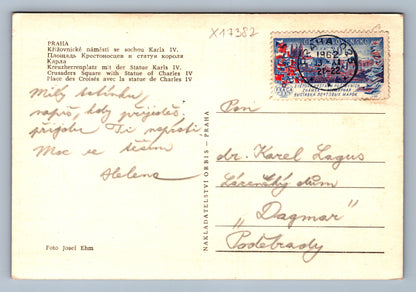 X17382
PRAHA
Křižovnické náměstí se sochou Karla IV.
Площадь Крестоносцев и статуя короля
Карла
Kreuzherrenplatz mit der Statue Karls IV.
Crusaders Square with Statue of Charles IV
Place des Croisés avec la statue de Charles IV
Milý tatínku,
napiš, kdy přijedeš,
přijedu Ti naproti
Moc se těším
Helena
Foto Josef Ehm
NAKLADATELSTVÍ ORBIS - PRAHA
PRAHA
1962
21-22
Pan
dr. Karel Lagus
Lázeňský dům
„Dagmar"
Poděbrady